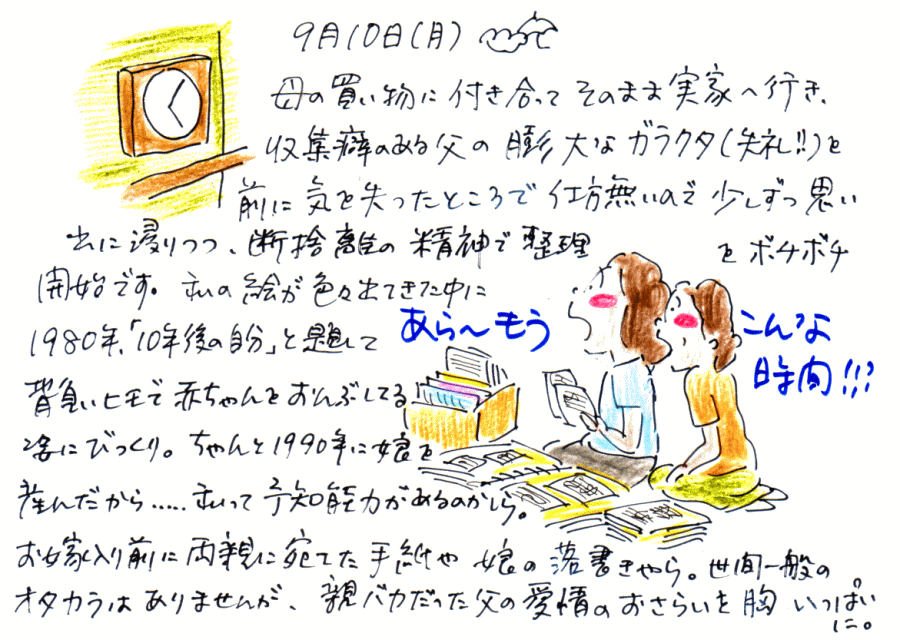 9月10日(月)
母の買い物に付き合ってそのまま実家へ行き、
収集癖のある父の膨大なガラクタ(失礼!!)を
前に気を失ったところで仕方無いので少しずつ思い
出に浸りつつ、断捨離の精神で整理をボチボチ
開始です。私の絵が色々出てきた中に
1980年、「10年後の自分」と題して
あら〜もう
こんな
時間!!!
背負いヒモで赤ちゃんをおんぶしてる
絵にびっくり。ちゃんと1990年に娘を
産んだから.....私って予知能力があるのかしら。
お嫁入り前に両親に宛てた手紙や娘の落書きやら。世間一般の
オタカラはありませんが、親バカだった父の愛情のおさらいを胸いっぱい
に。